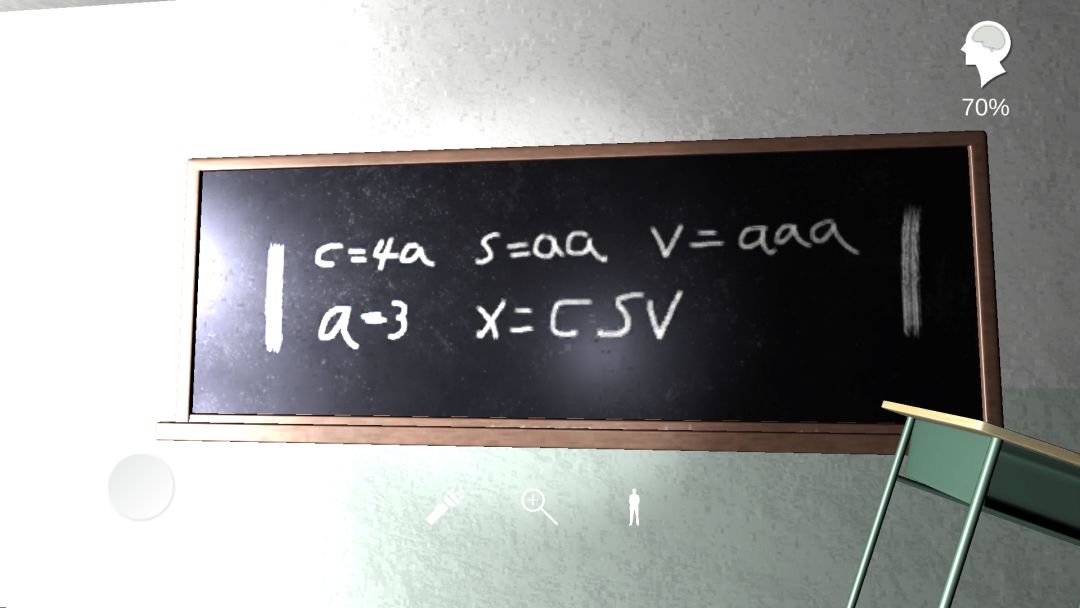 70%
c=4a s=aa v=aaa
a=3 x=CSV